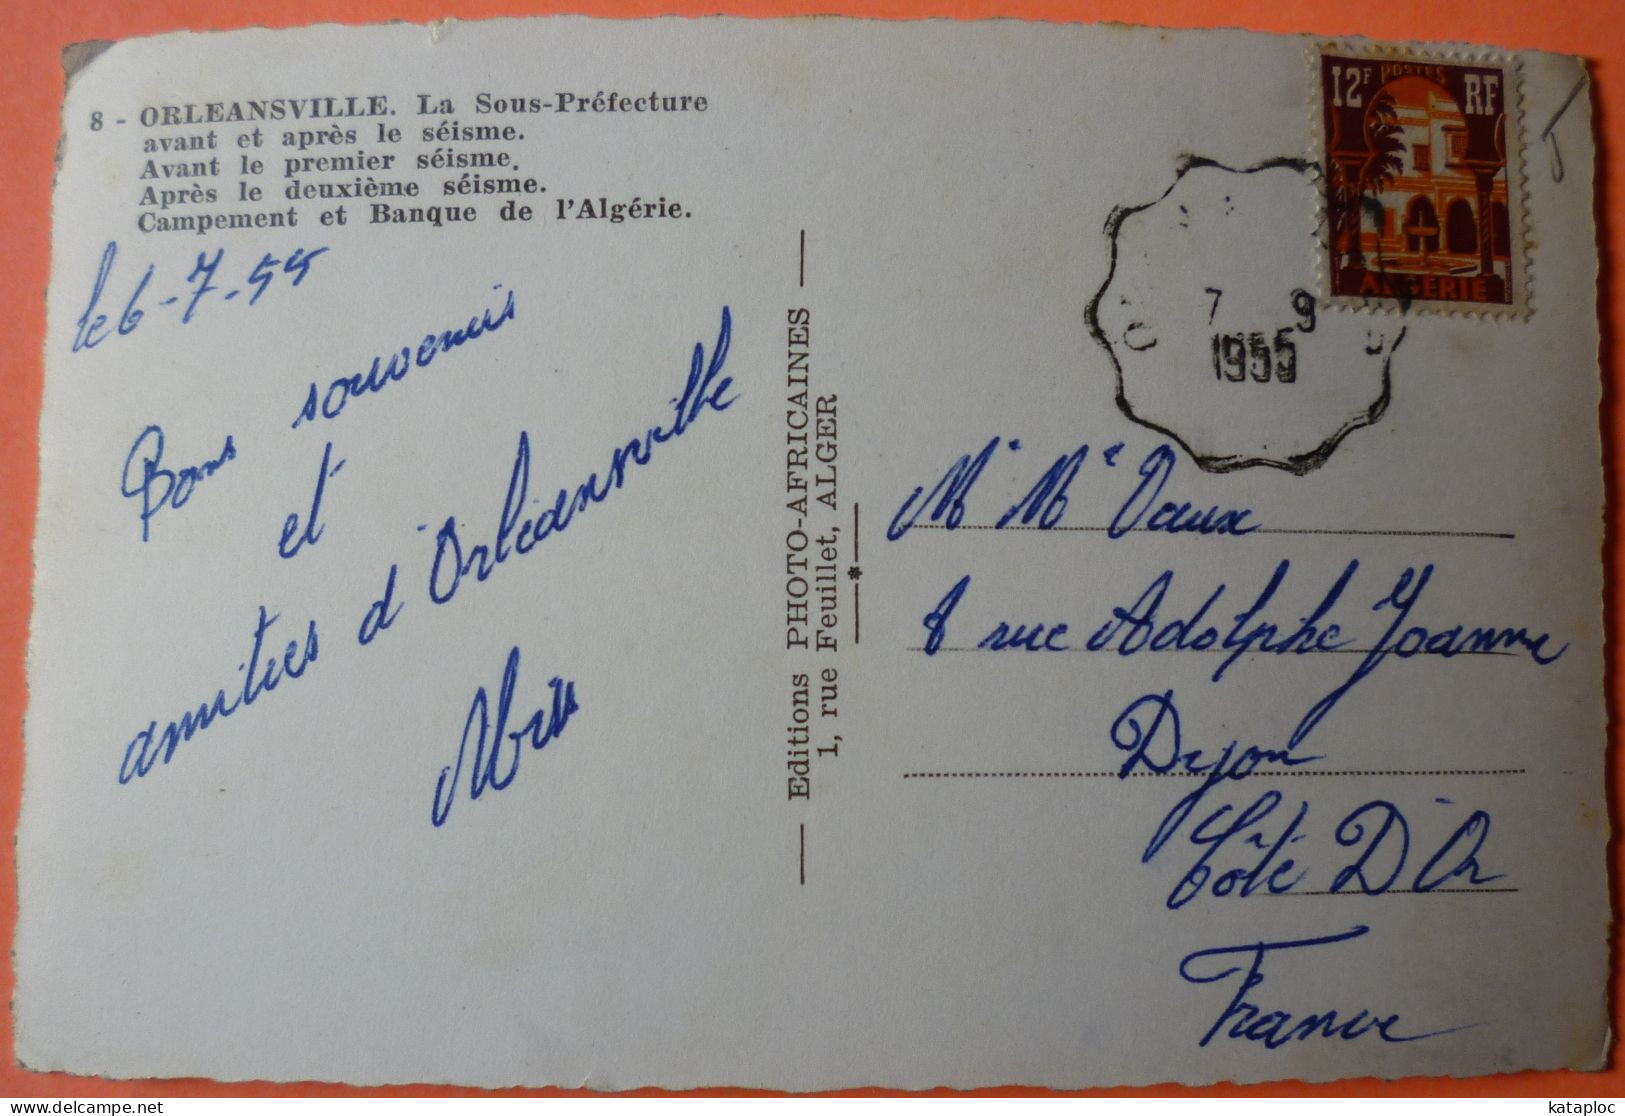 8 - ORLEANSVILLE. La Sous-Préfecture
avant et après le séisme.
Avant le premier séisme.
Après le deuxième séisme.
Campement et Banque de l'Algérie.
le 6-7-55
Bons souvenirs
et
amitiés d'Orléansville
Editions PHOTO-AFRICAINES
1, rue Feuillet, ALGER
12F POSTES RF
ALGERIE
7 9
1955
Mr Me Vaux
8 rue Adolphe Joanne
Dijon
Côte D'Or
France
kataploc